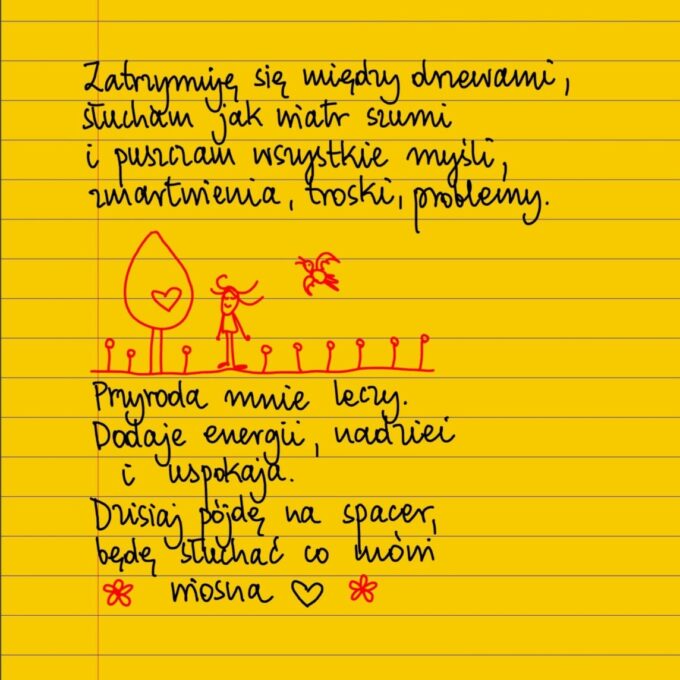 Zatrzymuję się między drzewami,
słucham jak wiatr szumi
i puszczam wszystkie myśli,
zmartwienia, troski, problemy.
Przyroda mnie leczy.
Dodaje energii, nadziei
i uspokaja.
Dzisiaj pójdę na spacer,
będę słuchać co mówi
wiosna